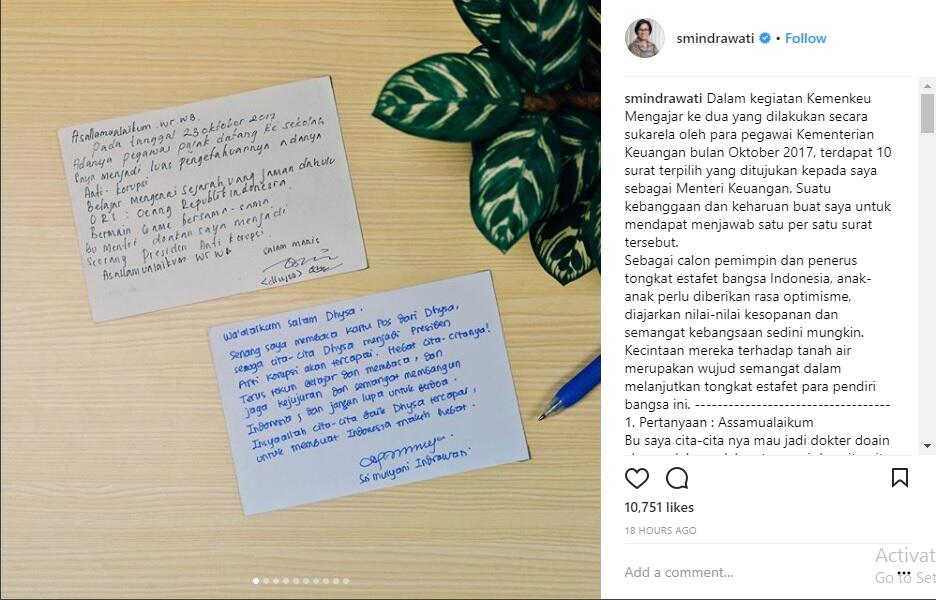 Asallamualaikum. Wr WB.
Pada tanggal 23 Oktober 2017
Adanya pegawai pajak datang ke sekolah
saya menjadi luas pengetahuannya adanya
Anti-korupsi
Belajar Mengenai Sejarah uang jaman dahulu
ORI : Oeang Republik Indonesia.
Bermain Game bersama-sama
Bu Mentri doakan saya menjadi
Seorang Presiden Anti Korupsi.
Asallamualaikum Wr WB
salam manis
Wa'alaikum salam Dhysa.
Senang saya membaca Kartu Pos dari Dhysa,
semoga cita-cita Dhysa menjadi Presiden
Anti Korupsi akan tercapai. Hebat cita-citanya!
Terus tekun belajar dan membaca, dan
jaga kejujuran dan semangat membangun
Indonesia, dan jangan lupa untuk berdoa.
Insyaallah cita-cita baik Dhysa tercapai,
untuk membuat Indonesia makin hebat.
Sri Mulyani Indrawati.
smindrawati • Follow
smindrawati Dalam kegiatan Kemenkeu
Mengajar ke dua yang dilakukan secara
sukarela oleh para pegawai Kementerian
Keuangan bulan Oktober 2017, terdapat 10
surat terpilih yang ditujukan kepada saya
sebagai Menteri Keuangan. Suatu
kebanggaan dan keharuan buat saya untuk
mendapat menjawab satu per satu surat
tersebut.
Sebagai calon pemimpin dan penerus
tongkat estafet bangsa Indonesia, anak-
anak perlu diberikan rasa optimisme,
diajarkan nilai-nilai kesopanan dan
semangat kebangsaan sedini mungkin.
Kecintaan mereka terhadap tanah air
merupakan wujud semangat dalam
melanjutkan tongkat estafet para pendiri
bangsa ini. -----------------------------------
1. Pertanyaan : Assamualaikum
Bu saya cita-cita nya mau jadi dokter doain
10,751 likes
18 HOURS AGO
Add a comment...
Activat
Go to Set